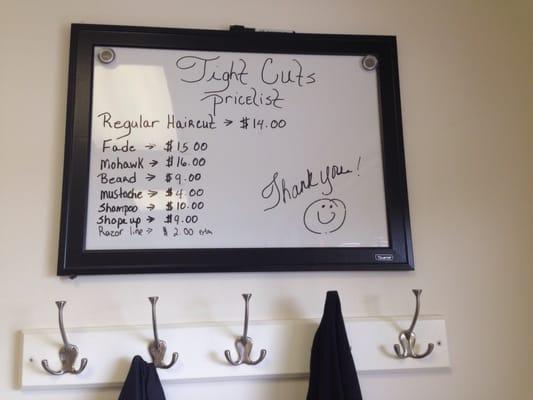 Tight Cuts
pricelist
Regular Haircut → $14.00
Fade → $15.00
Mohawk → $16.00
Beard → $9.00
mustache → $4.00
Shampoo → $10.00
Shape up → $9.00
Razor line → $2.00 extra
Thank you!